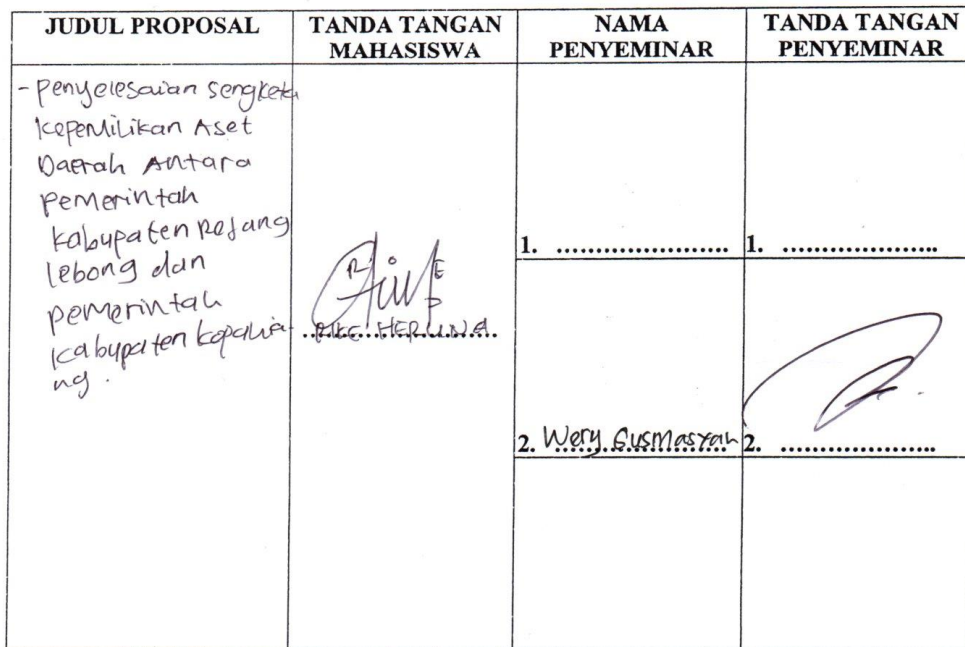 JUDUL PROPOSAL
TANDA TANGAN
MAHASISWA
NAMA
PENYEMINAR
TANDA TANGAN
PENYEMINAR
- Penyelesaian Sengketa
Kepemilikan Aset
Daerah Antara
Pemerintah
Kabupaten Rejang
lebong dan
pemerintah
Kabupaten kepahia
ng.
HERLINA
1. ....................
1. ..................
2. Wery Gusmasyah
2. ..................